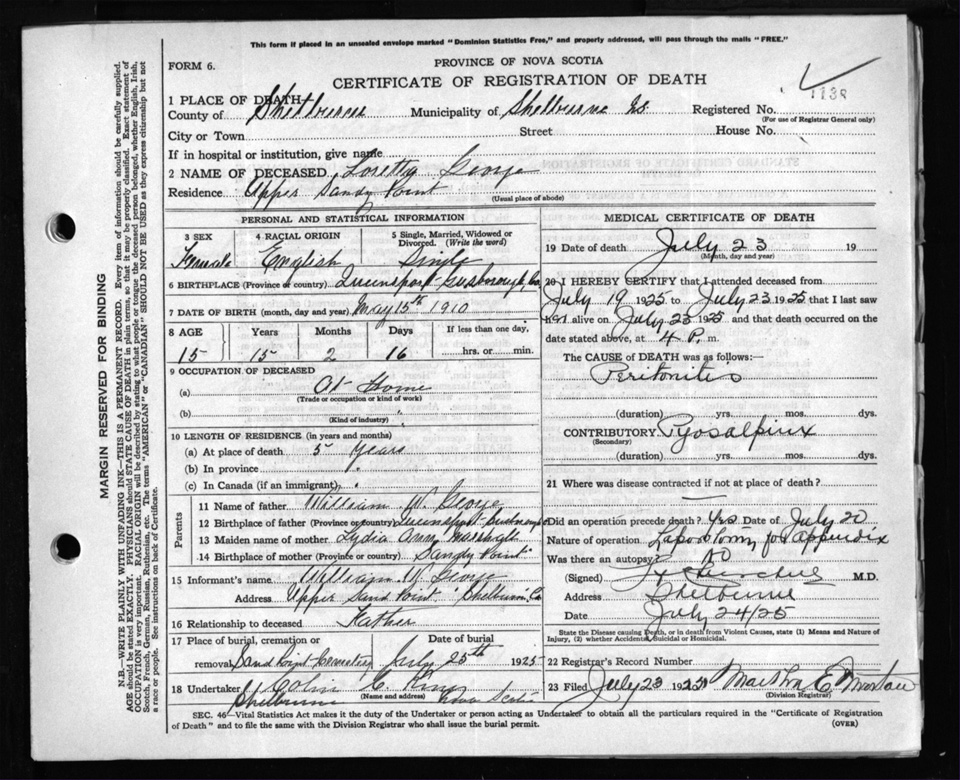 This form if placed in an unsealed envelope marked "Dominion Statistics Free," and properly addressed, will pass through the mails "FREE."
FORM 6.
PROVINCE OF NOVA SCOTIA
CERTIFICATE OF REGISTRATION OF DEATH
1138
1 PLACE OF DEATH—
County of Shelburne Municipality of Shelburne Registered No.
(For use of Registrar General only)
City or Town Street House No.
If in hospital or institution, give name
2 NAME OF DECEASED Loretta George
Residence Upper Sandy Point
(Usual place of abode)
PERSONAL AND STATISTICAL INFORMATION
3 SEX 4 RACIAL ORIGIN 5 Single, Married, Widowed or Divorced. (Write the word)
Female English Single
6 BIRTHPLACE (Province or country) Queensport Guysborough, Co
7 DATE OF BIRTH (month, day and year) May 15th 1910
8 AGE Years Months Days If less than one day,
15 15 2 16 hrs. or min.
9 OCCUPATION OF DECEASED
(a) At Home
(Trade or occupation or kind of work)
(b)
(Kind of industry)
10 LENGTH OF RESIDENCE (in years and months)
(a) At place of death 5 Years
(b) In province
(c) In Canada (if an immigrant)
Parents
11 Name of father William W. George
12 Birthplace of father (Province or country) Queensport
13 Maiden name of mother Lydia Ann
14 Birthplace of mother (Province or country) Sandy Point
15 Informant's name William W. George
Address Upper Sand Point Shelburn Co
16 Relationship to deceased Father
17 Place of burial, cremation or Date of burial
removal Sand Point Cemetery July 25th 1925
18 Undertaker Colin C. King
(Name and address)
Shelburne Nova Scotia
MEDICAL CERTIFICATE OF DEATH
19 Date of death July 23 19
(Month, day and year)
20 I HEREBY CERTIFY that I attended deceased from
July 19 1925 to July 23 1925 that I last saw
her alive on July 23 1925 and that death occurred on the
date stated above, at 4 P. m.
The CAUSE OF DEATH was as follows:
Peritonitis
(duration) yrs. mos. dys.
CONTRIBUTORY Pyosalpinx
(Secondary)
(duration) yrs. mos. dys.
21 Where was disease contracted if not at place of death?
—
Did an operation precede death? Yes Date of July 20
Nature of operation Laporotomy for appendix
Was there an autopsy? No
(Signed) M.D.
Address Shelburne
Date July 24/25
State the Disease causing Death, or in death from Violent Causes, state (1) Means and Nature of
Injury, (2) whether Accidental, Suicidal or Homicidal.
22 Registrar's Record Number
23 Filed July 23 1925 Martha E.
(Division Registrar)
SEC. 46—Vital Statistics Act makes it the duty of the Undertaker or person acting as Undertaker to obtain all the particulars required in the "Certificate of Registration
of Death" and to file the same with the Division Registrar who shall issue the burial permit. (OVER)
MARGIN RESERVED FOR BINDING
N.B.—WRITE PLAINLY WITH UNFADING INK—THIS IS A PERMANENT RECORD. Every item of information should be carefully supplied.
AGE should be stated EXACTLY. PHYSICIANS should STATE CAUSE OF DEATH in plain terms, so that it may be properly classified. Exact statement of
OCCUPATION is very important. RACIAL ORIGIN will be described by stating to what people or tongue the deceased person belonged, whether English, Irish,
Scotch, French, German, Russian, Ruthenian, etc. The terms "AMERICAN" or "CANADIAN" SHOULD NOT BE USED as they express citizenship but not
a race or people. See instructions on back of Certificate.